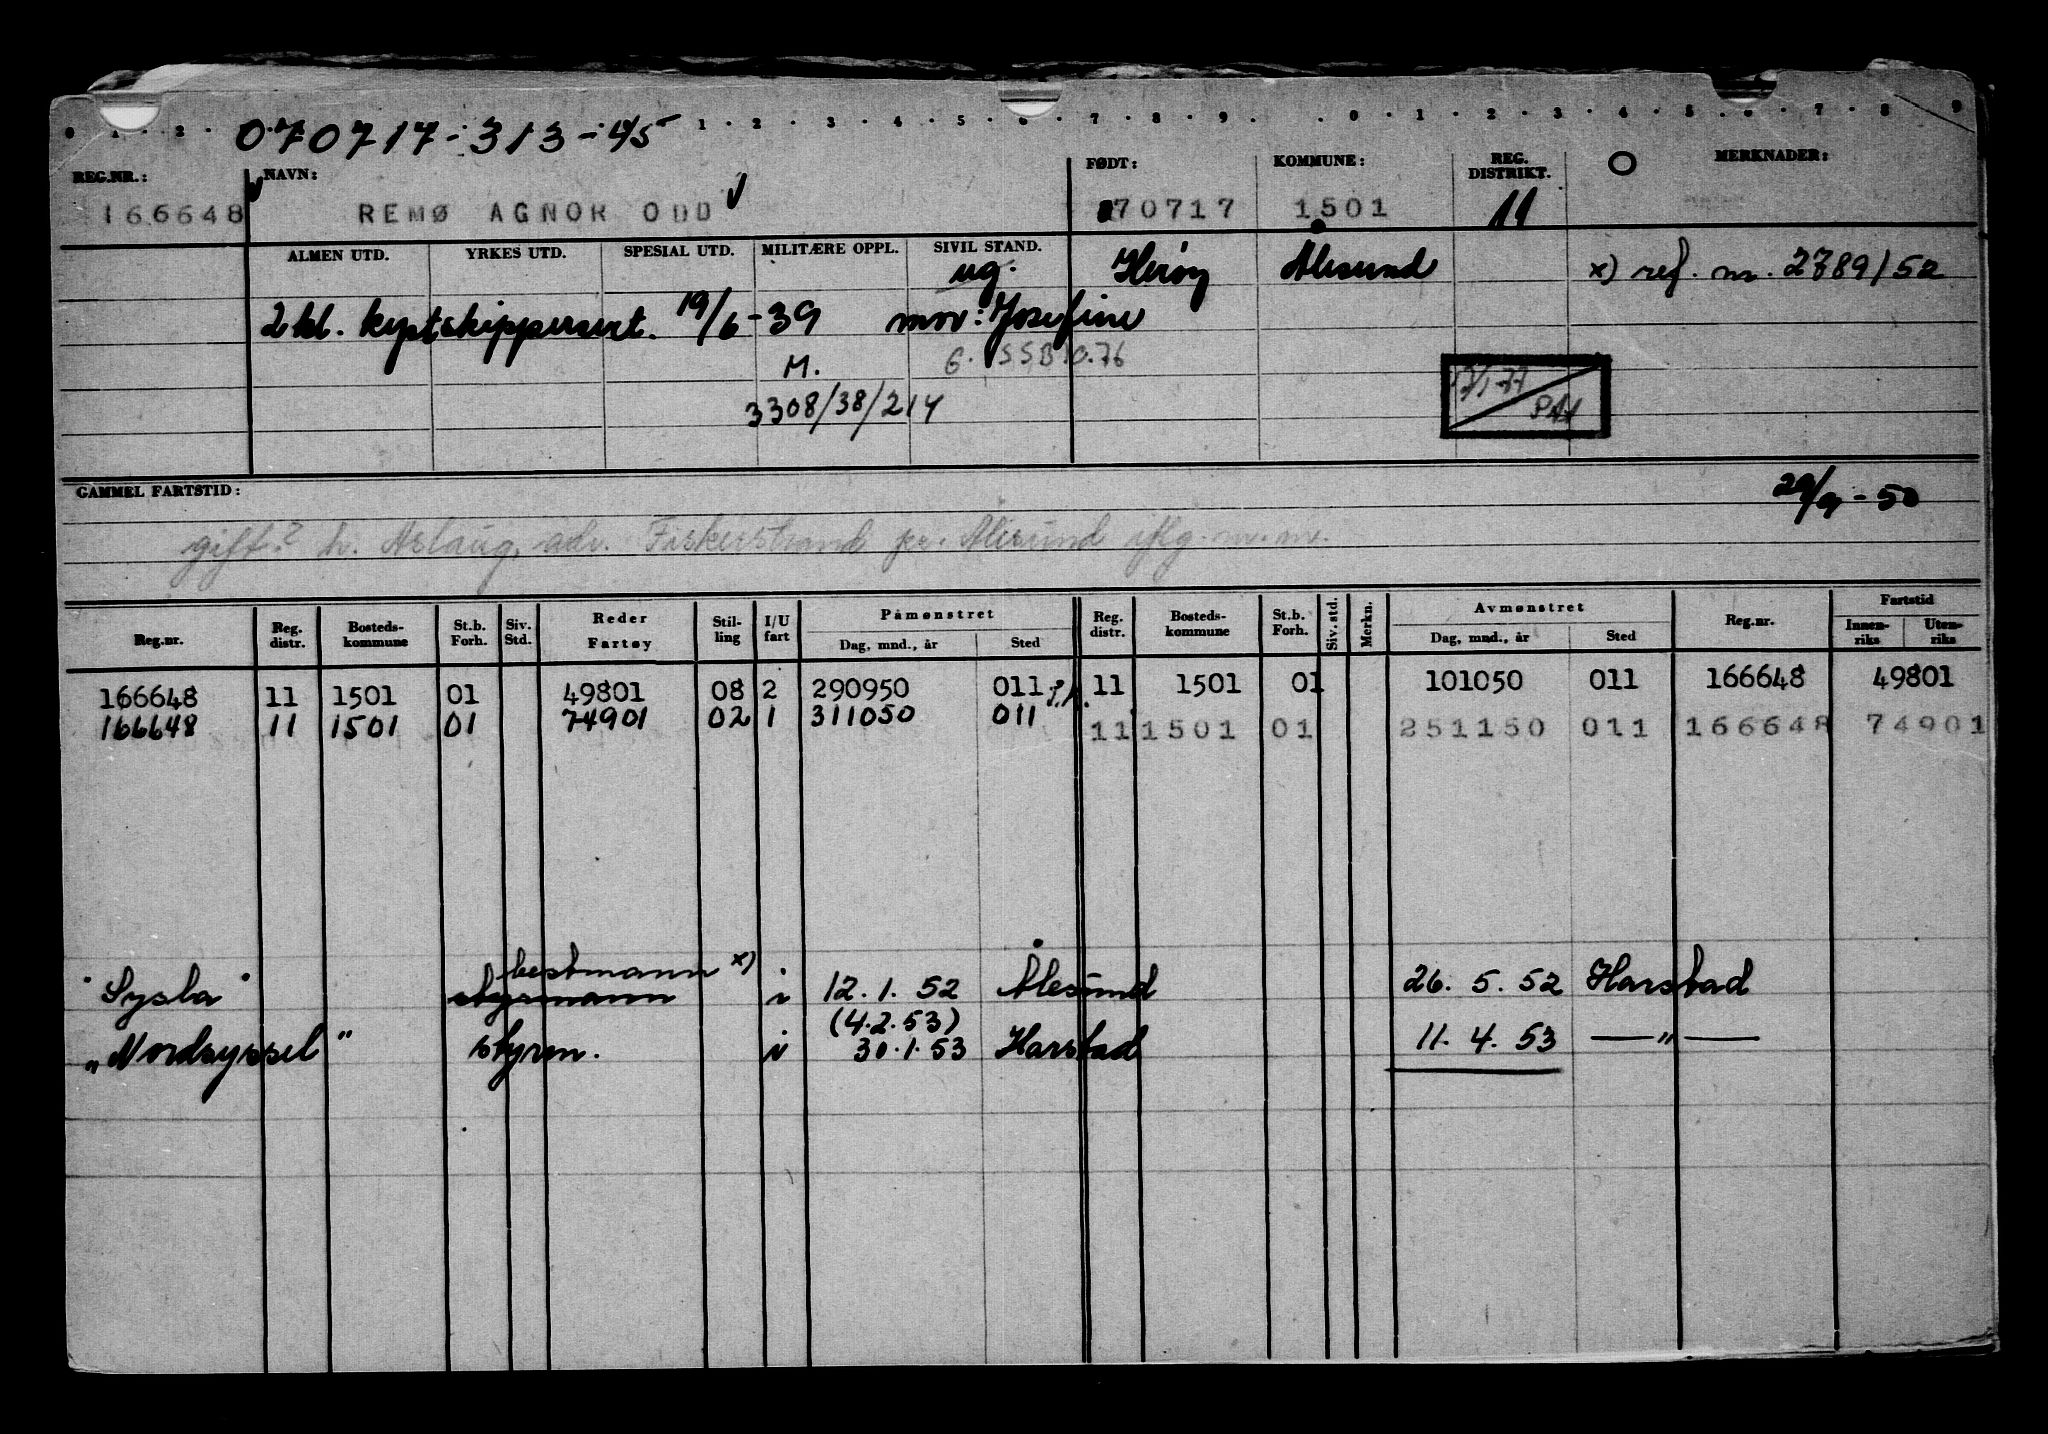 070717-313-45
REG.NR.: NAVN: FØDT: KOMMUNE: REG. DISTRIKT. MERKNADER:
166648 REMØ AGNOR ODD 070717 1501 11
ALMEN UTD. YRKES UTD. SPESIAL UTD. MILITÆRE OPPL. SIVIL STAND.
ug. Herøy Ålesund x) ref. nr. 2789/52
2 kl. kystskippersert. 19/6-39 mor: Josefine
M. G. SSB 10.76
3308/38/214
17/1-77
GAMMEL FARTSTID: 29/9-50
gift? h. Aslaug, adr. Fiskerstrand pr. Ålesund iflg. m.m.
Reg.nr. Reg. distr. Bosteds-kommune St.b. Forh. Siv. Std. Reder Fartøy Stil-ling I/U fart Påmønstret Dag, mnd., år Sted Reg. distr. Bosteds-kommune St.b. Forh. Siv. std. Merkn. Avmønstret Dag, mnd., år Sted Reg.nr. Fartstid Innen-riks Uten-riks
166648 11 1501 01 49801 08 2 290950 011 11 1501 01 101050 011 166648 49801
166648 11 1501 01 74901 02 1 311050 011 11 1501 01 251150 011 166648 74901
bestmann x)
"Sysla" styrmann i 12.1.52 Ålesund 26.5.52 Harstad
(4.2.53)
"Nordsyssel" styrm. i 30.1.53 Harstad 11.4.53 —"—